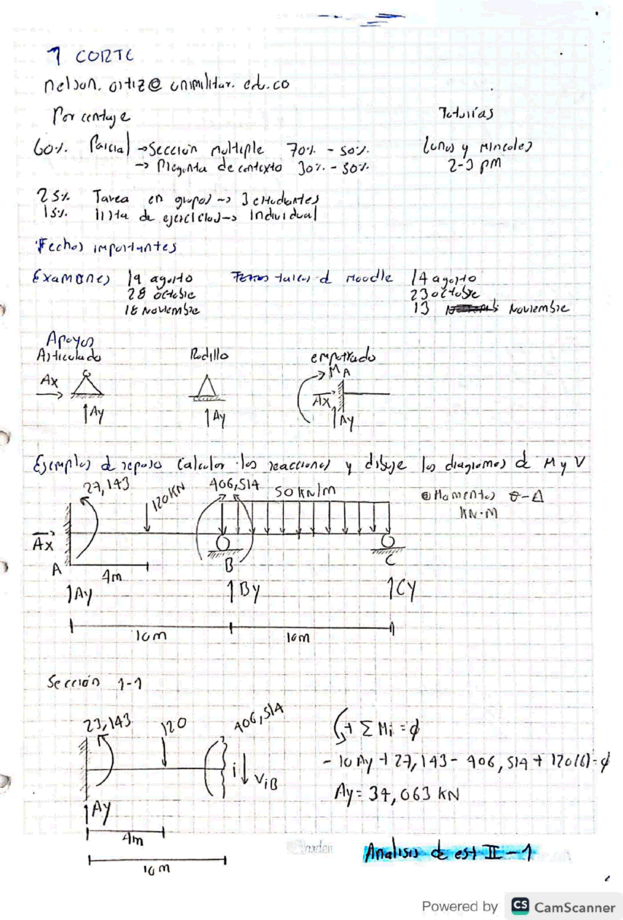 1 CORTE
nelson.ortiz@unimilitar.edu.co
Porcentaje
Tutorías
60% Parcial → Sección multiple 70% - 50%
Lunes y Miercoles
→ Pregunta de contexto 30% - 50%
2-3 pm
25% Tarea en grupos → 3 estudiantes
15% lista de ejercicios → Individual
Fechas importantes
Examenes 19 agosto
28 octubre
18 Noviembre
Moodle 14 agosto
23 octubre
13 Noviembre
Apoyos
Articulado
Rodillo
empotrado
Ax
Ay
Ay
MA
Ax
Ay
Ejemplos d repaso Calcular las reacciones y dibuje los diagramas de M y V
27,143
120 KN
406,514
50 KN/m
Momentos θ-Δ
KN-M
Ax
A
B
C
4m
Ay
By
Cy
10m
10m
Sección 1-1
23,143
120
406,514
i
ViB
Ay
4m
10m
+ Σ Mi = ϕ
- 10 Ay + 27,143 - 406,514 + 120(6) = ϕ
Ay = 34,063 KN
Analisis de est II - 1
Powered by CS CamScanner